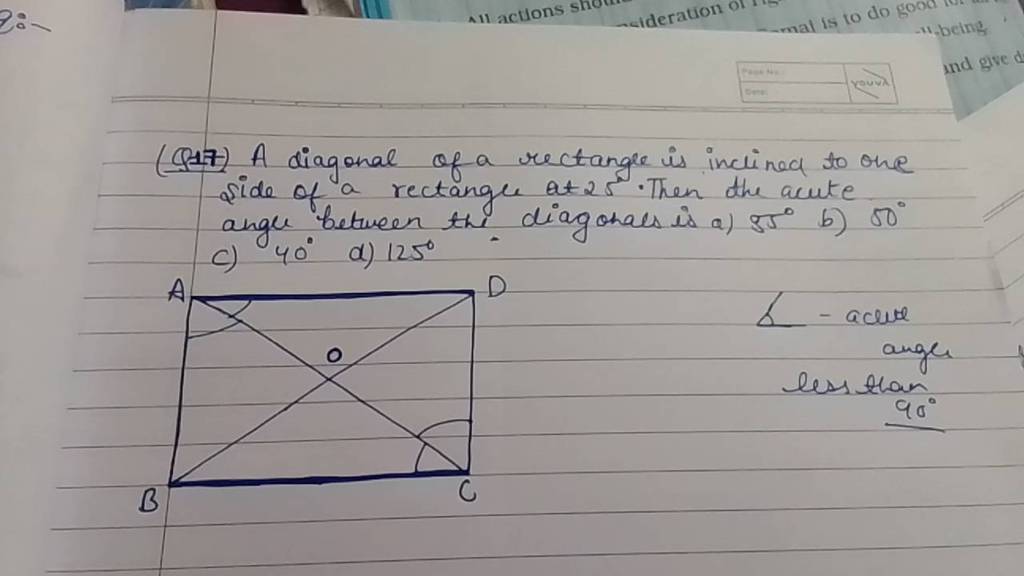 All actions
sideration of
mal is to do good
being
and give
Page No.:
Date:
YOUVA
(Q17) A diagonal of a rectangle is inclined to one
side of a rectangle at 25°. Then the acute
angle between the diagonals is a) 55° b) 50°
c) 40° d) 125°
A D
O
B C
- acute
angle
less than
90°